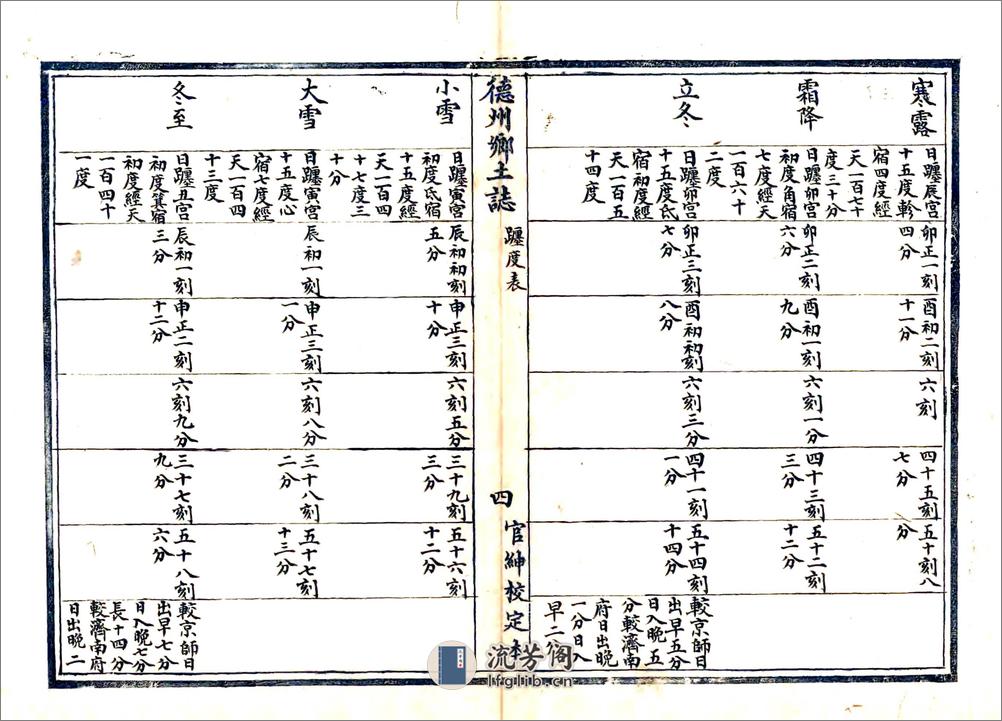 寒露
日躔辰宮
十五度軫
宿四度經
天一百七十
度三十分
卯正一刻
四分
酉初二刻
十一分
六刻
四十五刻
七分
五十刻八
分
霜降
日躔卯宮
初度角宿
七度經天
一百六十
二度
卯正二刻
六分
酉初一刻
九分
六刻一分
四十三刻
三分
五十二刻
十二分
立冬
日躔卯宮
十五度氐
宿初度經
天一百五
十四度
卯正三刻
七分
酉初初刻
八分
六刻三分
四十一刻
一分
五十四刻
十四分
較京師日
出早五分
日入晚五
分較濟南
府日出晚
一分日入
早二分
德州鄉土誌
躔度表
四
官紳校定本
小雪
日躔寅宮
初度氐宿
十五度經
天一百四
十七度三
十分
辰初初刻
五分
申正三刻
十分
六刻五分
三十九刻
三分
五十六刻
十二分
大雪
日躔寅宮
十五度心
宿七度經
天一百四
十三度
辰初一刻
申正三刻
一分
六刻八分
三十八刻
二分
五十七刻
十三分
冬至
日躔丑宮
初度箕宿
初度經天
一百四十
一度
辰初一刻
三分
申正二刻
十二分
六刻九分
三十七刻
九分
五十八刻
六分
較京師日
出早七分
日入晚七分
長十四分
較濟南府
日出晚二
流芳閣
lfglib.cn